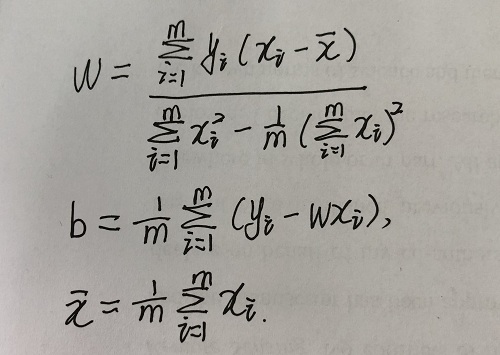 w = \frac{\sum_{i=1}^{m} y_i (x_i - \bar{x})}{\sum_{i=1}^{m} x_i^2 - \frac{1}{m} \left( \sum_{i=1}^{m} x_i \right)^2}
b = \frac{1}{m} \sum_{i=1}^{m} (y_i - wx_i),
\bar{x} = \frac{1}{m} \sum_{i=1}^{m} x_i.